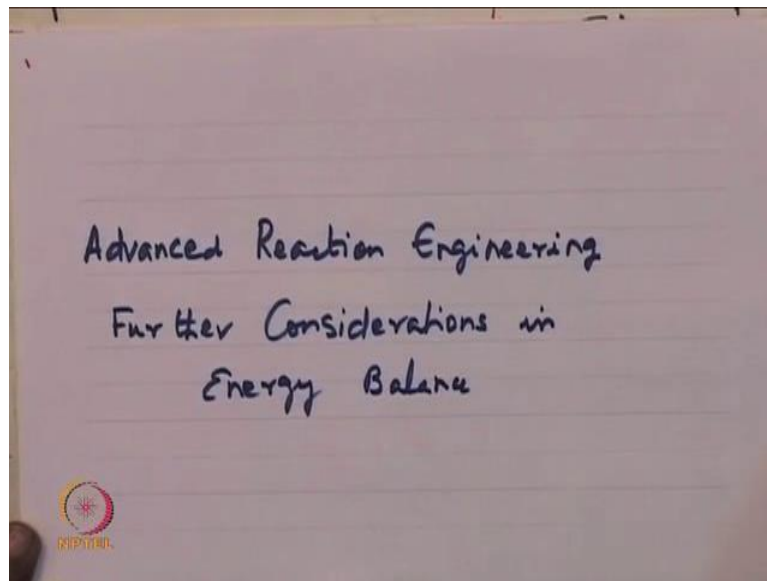 Advanced Reaction Engineering
Further Considerations in
Energy Balance
NPTEL